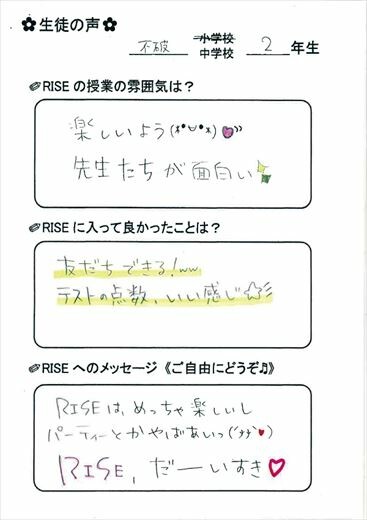 ✿生徒の声✿
不破 小学校
中学校 2 年生
RISEの授業の雰囲気は？
楽しいよう(*•᎑•*)♥"
先生たちが面白い
RISEに入って良かったことは？
友だちできる！ww
テストの点数、いい感じ☆彡
RISEへのメッセージ《ご自由にどうぞ♫》
RISEは、めっちゃ楽しいし
パーティーとかやばあいっ(´ｸｸ`♥)
RISE, だーいすき♡